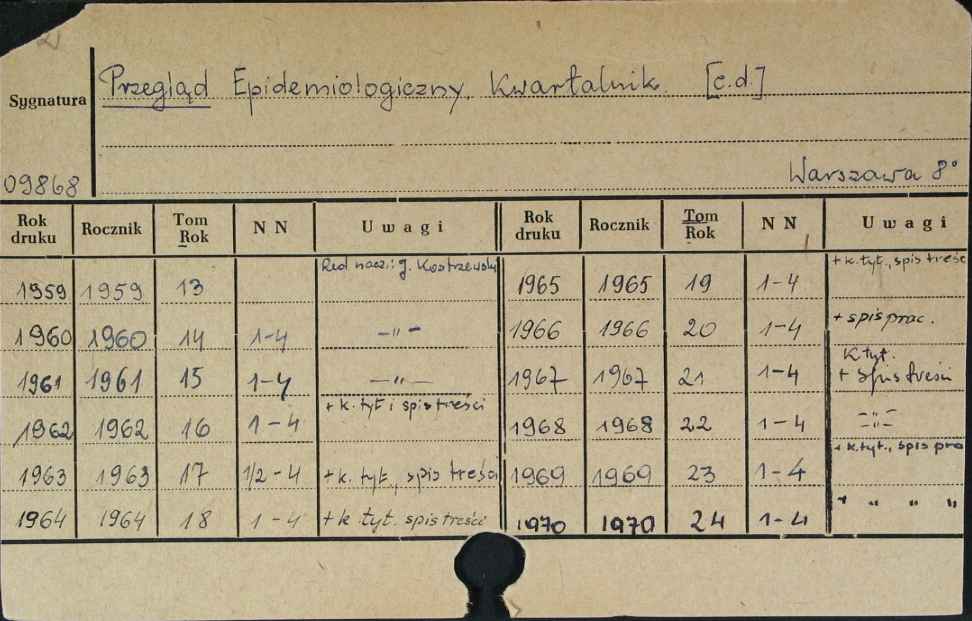 Przegląd Epidemiologiczny. Kwartalnik. [c.d.]
Sygnatura
09868
Warszawa 8°
Rok druku Rocznik Tom Rok NN Uwagi Rok druku Rocznik Tom Rok NN Uwagi
1959 1959 13 Red. nacz.: J. Kostrzewski 1965 1965 19 1-4 + k. tyt., spis treści
1960 1960 14 1-4 -"- 1966 1966 20 1-4 + spis prac.
1961 1961 15 1-4 -"- 1967 1967 21 1-4 K tyt. + spis treści
1962 1962 16 1-4 + k. tyt i spis treści 1968 1968 22 1-4 -"-
1963 1963 17 1/2-4 + k. tyt., spis treści 1969 1969 23 1-4 + k. tyt., spis prac
1964 1964 18 1-4 + k tyt. spis treści 1970 1970 24 1-4 " " " "